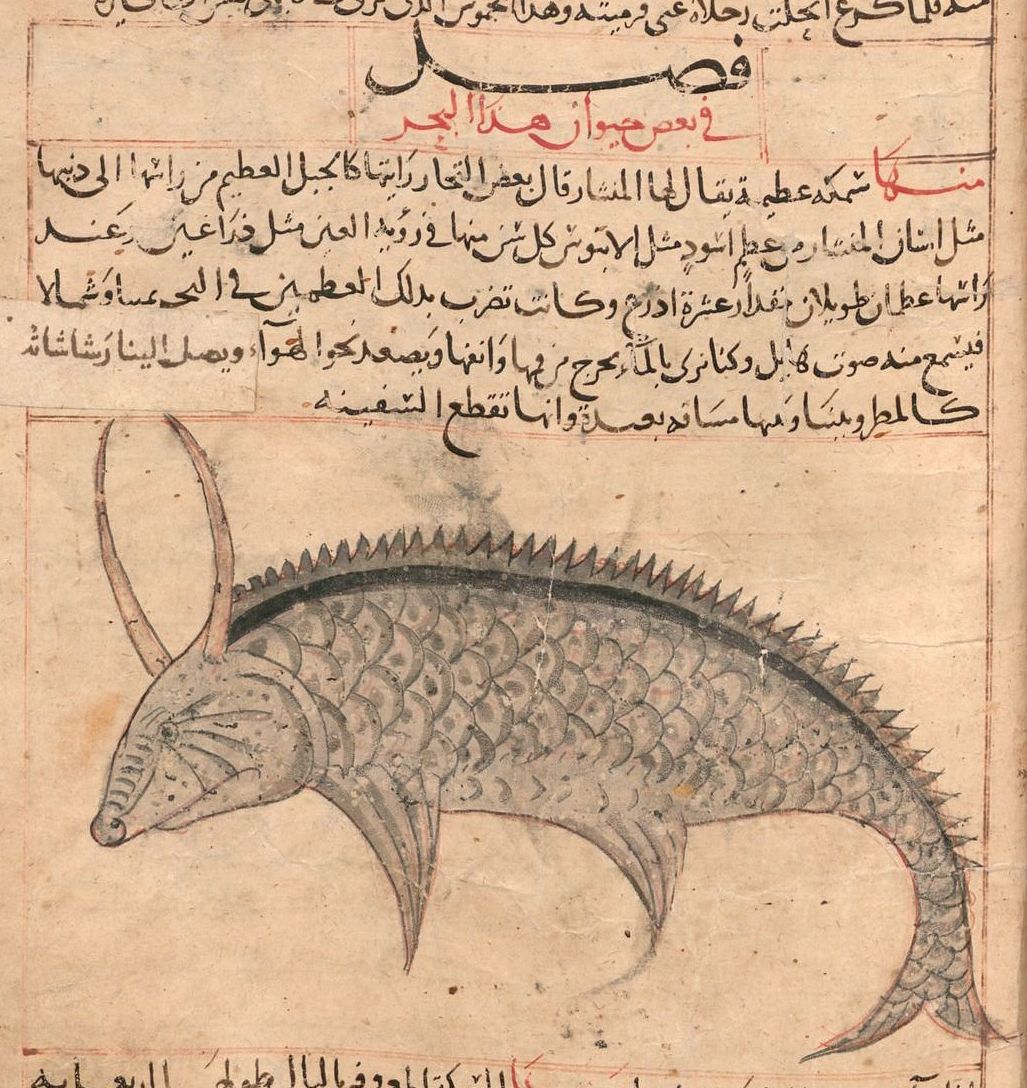 منه فلما كرع انحلت رجلاه عني فرميته وهذا
فصل
في بعض حيوان هذا البحر
منها سمكه عظيمة يقال لها المنشار قال بعض التجار رايتها كالجبل العظيم من راسها الى ذنبها
مثل اسنان المنشار من عظم اسود مثل الابنوس كل سن منها في رؤية العين مثل ذراعين وعند
راسها عظمان طويلان مقدار عشرة اذرع وكانت تضرب بذلك العظمين في البحر يمينا وشمالا
فيسمع منه صوت هايل وكنا نرى بالماء يخرج من فيها وانفها ويصعد نحو الهوآء ويصل الينا رشاشاته
كالمطر وبيننا وبينها مسافه بعيدة وانها تقطع السفينه